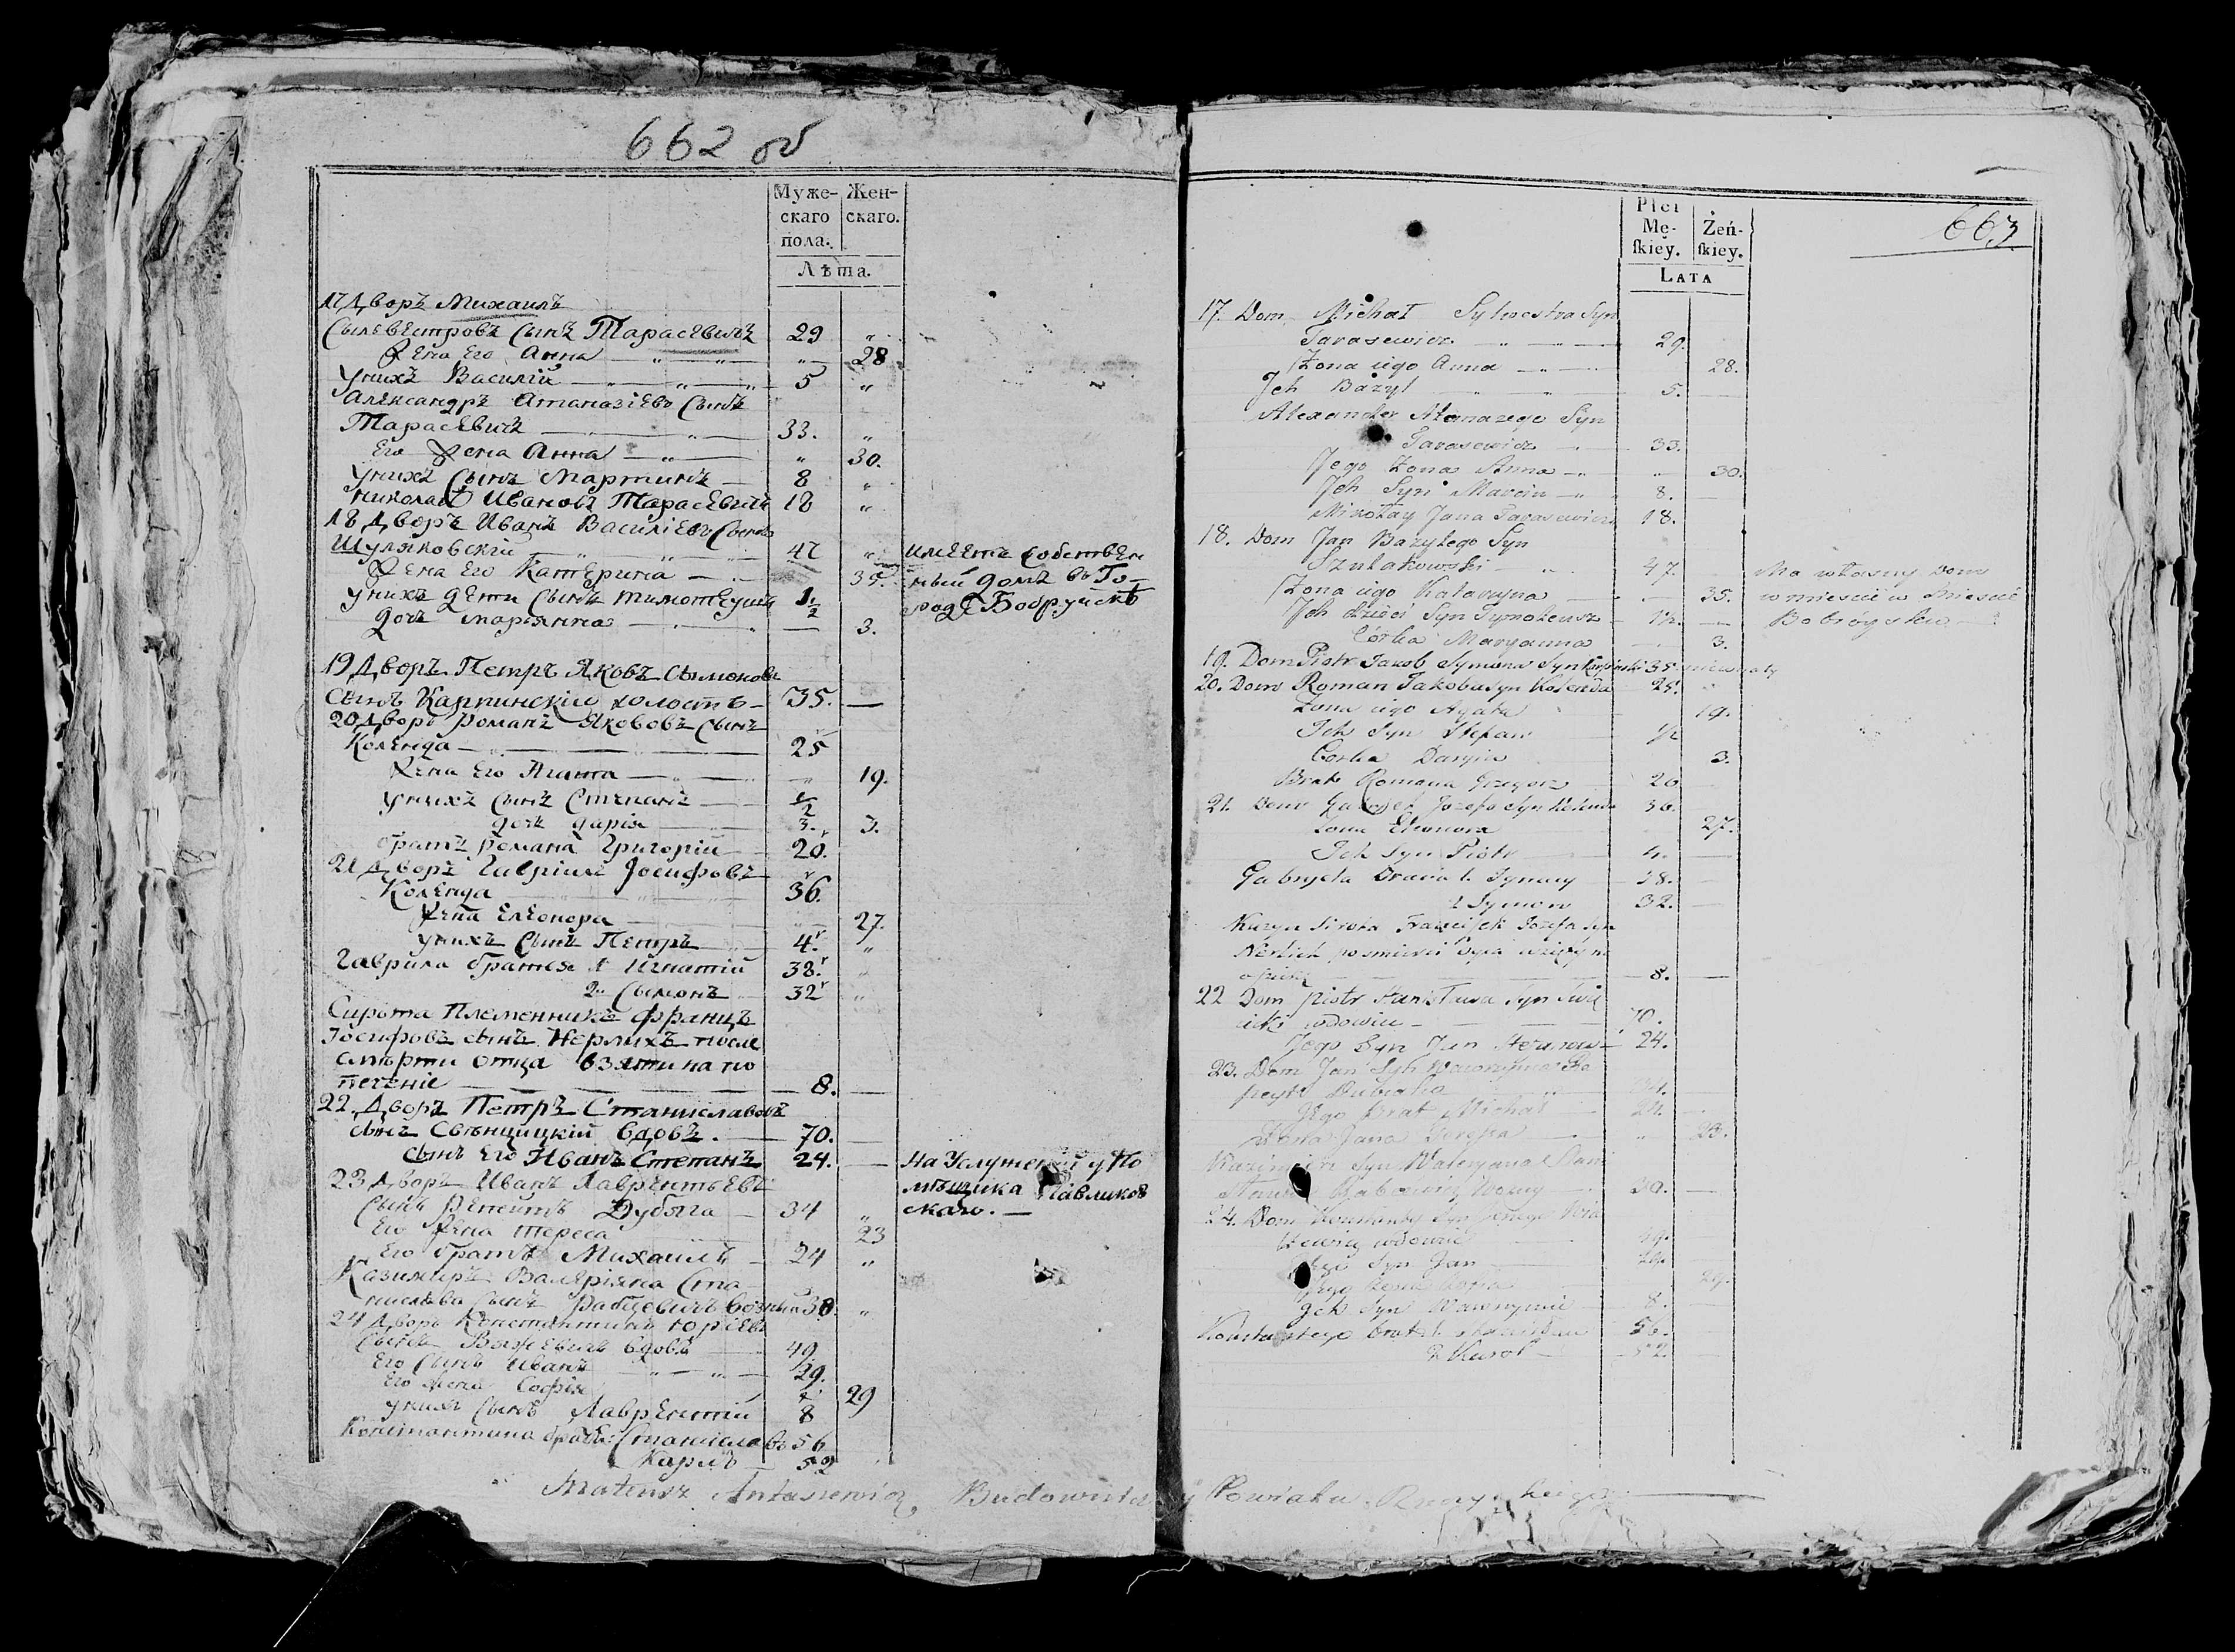 662 об
Муже-
скаго
пола.
Жен-
скаго.
Лѣта.
17 Дворъ Михаилъ
Сылвестровъ Сынъ Тарасевичъ 29 "
Жена Его Анна " 28
Унихъ Василій 5 "
Александръ Атаназіевъ Сынъ
Тарасевичъ 33. "
Его Жена Анна " 30.
Унихъ Сынъ Мартинъ 8 "
Николай Ивановъ Тарасевичъ 18 "
18 Дворъ Иванъ Василіевъ Сынъ
Шуляковскій 47 " имеетъ собствен
Жена Его Катерина 35. ный домъ въ Го-
Унихъ дети Сынъ Тимотеушъ 1/2 родѣ Бобруйскѣ
дочь Маріянна 3.
19 Дворъ Петръ Яковъ Сымоновъ
Сынъ Карпинскій холостъ 35. —
20 Дворъ Романъ Яковов Сынъ
Коленда 25
Жена Его Агата " 19.
Унихъ Сынъ Степанъ 1/2
дочь Дарія 3. 3.
братъ Романа Григорій 20.
21 Дворъ Гавріилъ Іосифовъ
Коленда 36.
Жена Елеонора 27.
Унихъ Сынъ Петръ 4. "
Гаврила братья 1 Игнатій 38. "
2 Сымонъ 32 "
Сирота Племенникъ Францъ
Іосифовъ сынъ Нерлихъ после
смерти отца взяти на по
печеніе 8. —
22. Дворъ Петръ Станиславовъ
сынъ Свѣнцицкій вдовъ. 70. —
сынъ Его Иванъ Степанъ 24. — На Услужении у По
23 Дворъ Иванъ Лаврентьевъ мѣщика Павликов
Сынъ Дубяга 34 " скаго. —
Его Жена Тереса 23
Его братъ Михаилъ 24 "
Казимиръ Валеріяна Ста-
нислава Сынъ Рабцевичъ возный 30. "
24 Дворъ Константинъ Юріевъ
Сынъ Вяжевичъ вдовъ 49
Его Сынъ Иванъ 29.
Его жена Софія 29
Унихъ Сынъ Лаврентій 8
Константина братья: Станиславъ 56
Карлъ 52
Mateusz Antasiewicz Budowniczy Powiatu
663
Płci
Mę-
ſkiey.
Żeń-
ſkiey.
LATA
17. Dom Michał Sylwestra Syn
Tarasewicz 29.
Żona iego Anna 28.
Ich Bazyl 5.
Alexander Atanazego Syn
Tarasewicz 33.
Jego Żona Anna " 30.
Ich Syn Marcin 8.
Mikołay Jana Tarasewicz 18.
18. Dom Jan Bazylego Syn
Szulakowski 47. Ma własny dom
Żona iego Katarzyna 35. w miescie w Miescie
Ich dzieci Syn Tymoteusz 1/2. Bobróysku
Córka Maryanna 3.
19. Dom Piotr Jakob Symona Syn Karpinski 35 nieżonaty
20. Dom Roman Jakoba syn Kolenda 25.
Żona iego Agata 19.
Ich Syn Stefan 1/2
Corka Daryia 3.
Brat Romana Grzegorz 20
21. Dom Gabryel Jozefa Syn Kolenda 36.
Żona Eleonora 27.
Ich Syn Piotr 4.
Gabryela Bracia 1. Ignacy 38.
2 Symon 32.
Sirota Franciszek Jozefa Syn
Nerlich po smierci Oyca wzięty na
opiekę 8.
22 Dom Piotr Stanisława Syn Świę
cicki wdowiec 70.
Jego Syn Jan 24.
23. Dom Jan Syn Wawrzynca
Dubiaha 34.
Jego brat Michał 24.
Żona Jana Teressa " 23.
Kazimierz Syn Waleryana Stani
Rabcewicz Wozny 30.
24. Dom Konstanty Syn Jerzego Wia
żewicz wdowiec 49.
Jego Syn Jan 29.
29.
Ich Syn Wawrzyniec 8.
Konstantego brat 1. Stanisław 56.
2 Karol 52.